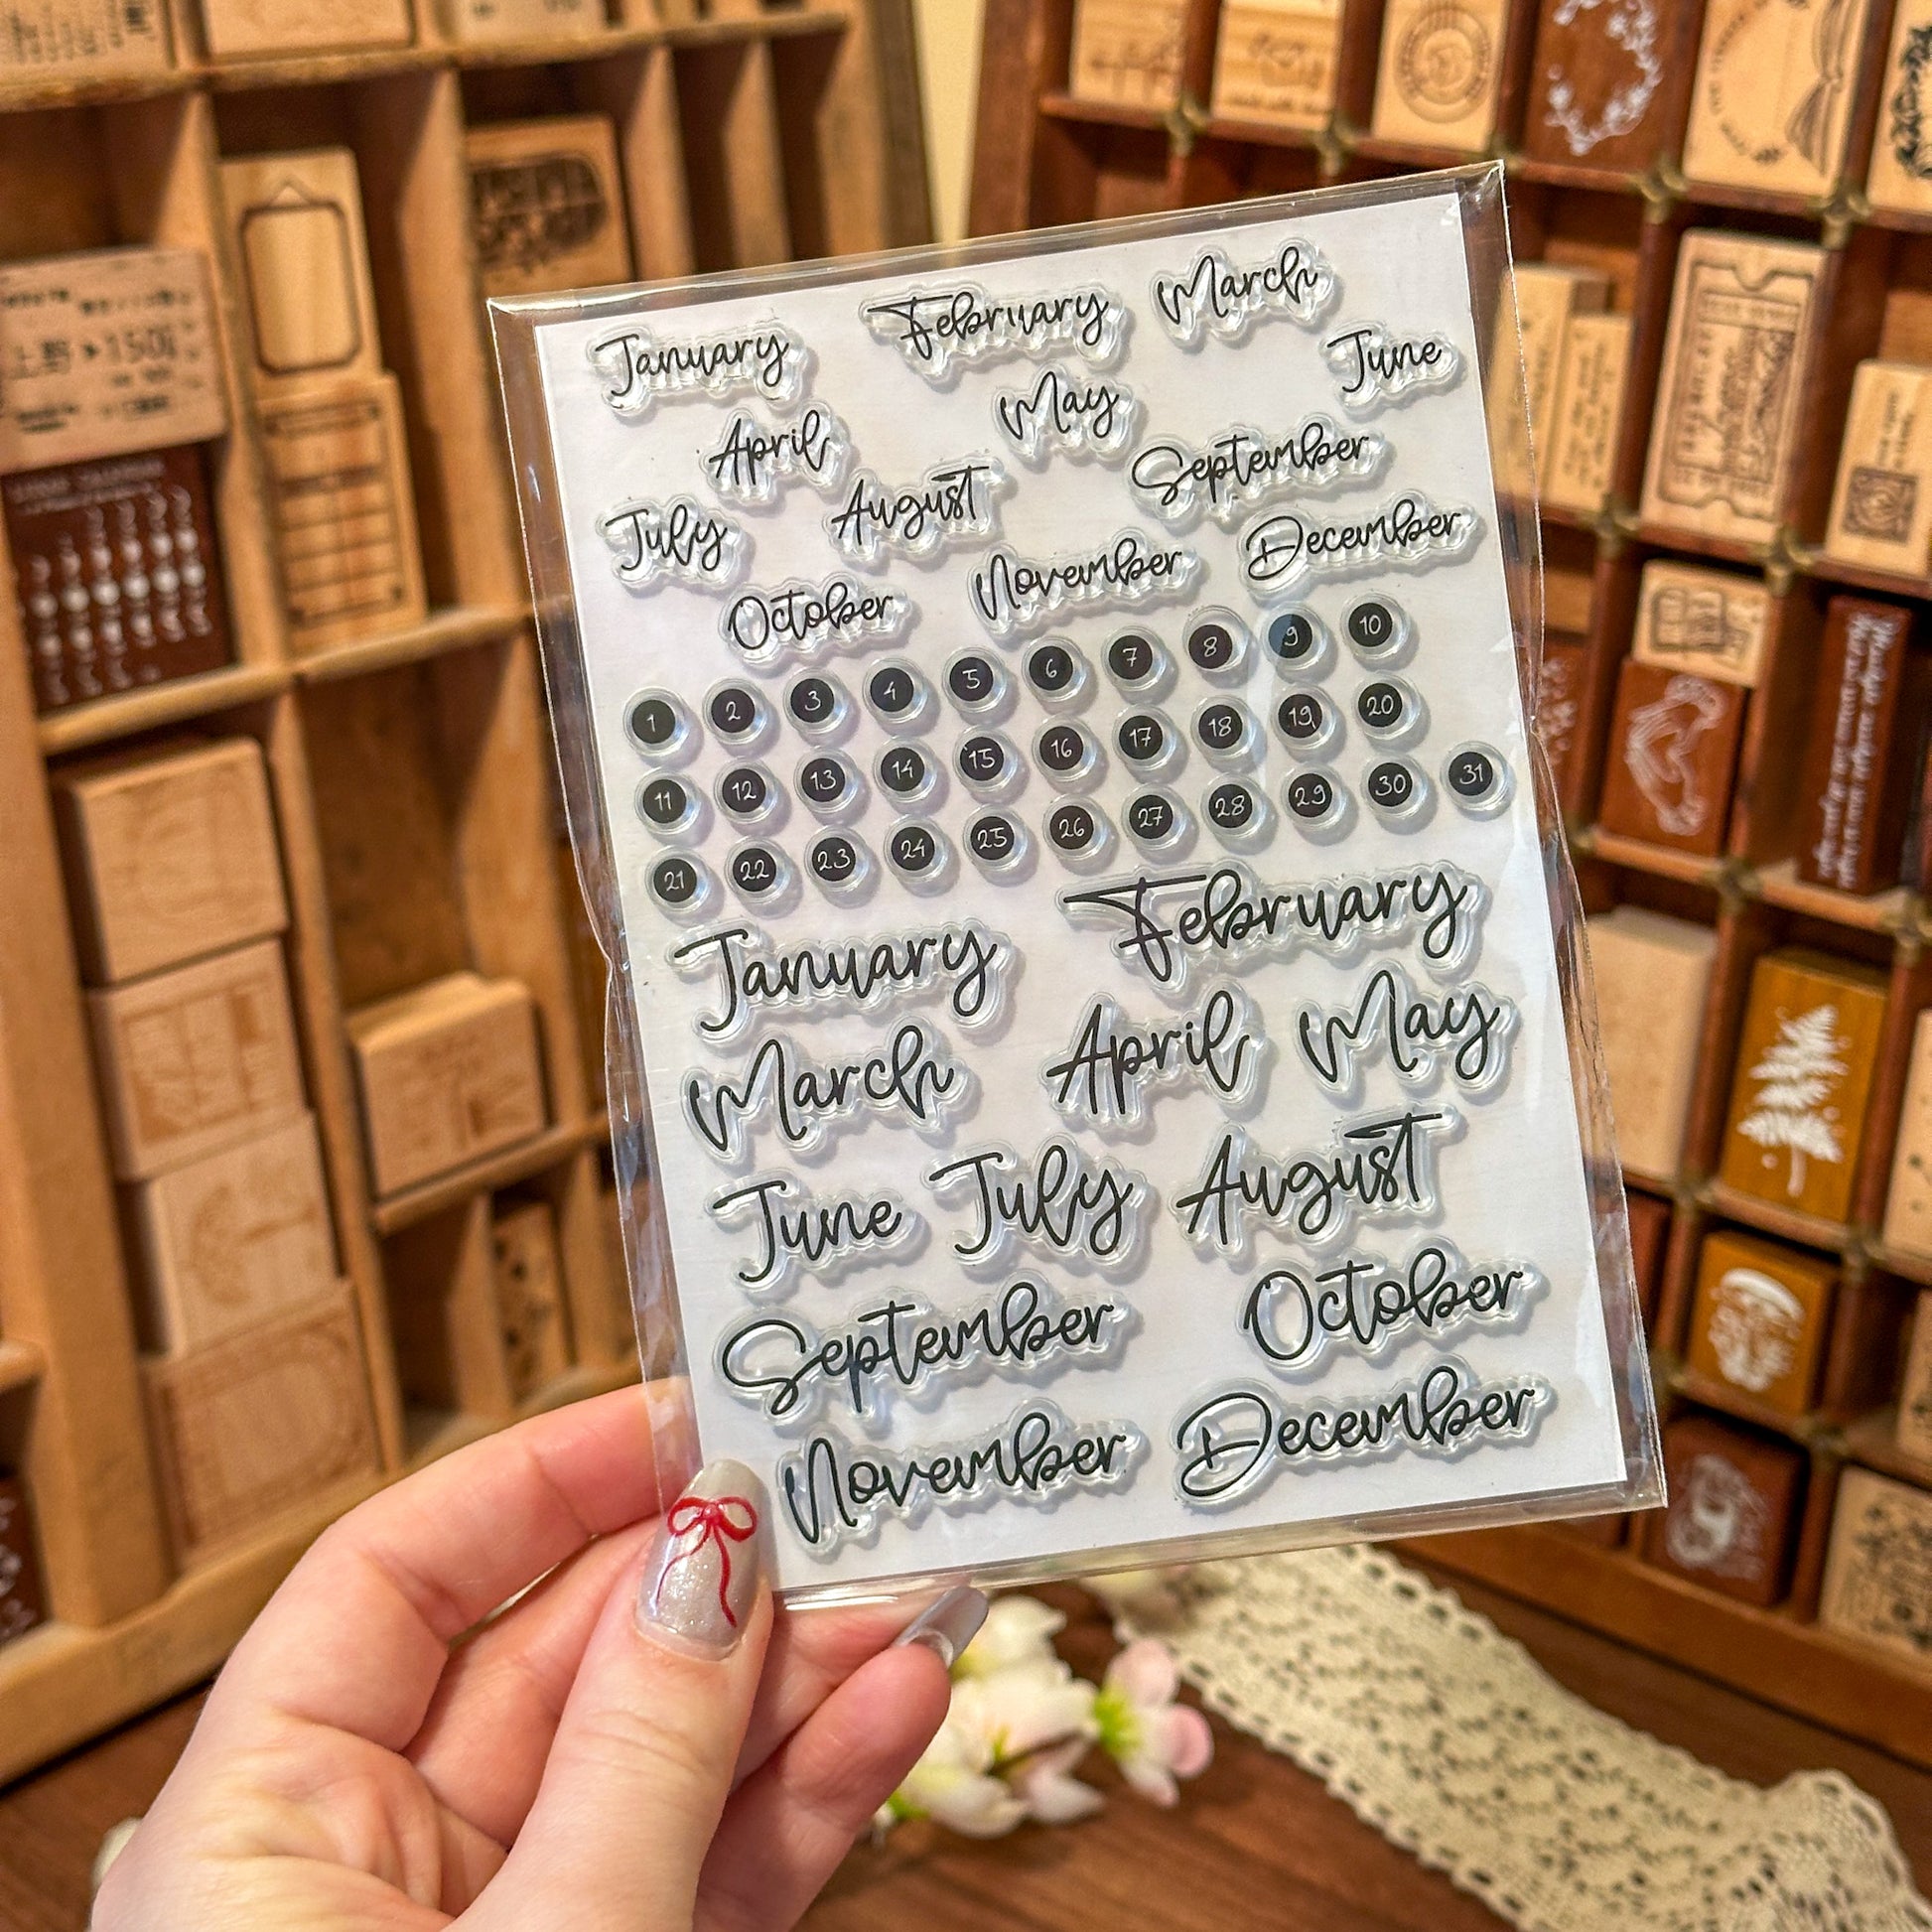 January February March
April May June
July August September
October November December
1 2 3 4 5 6 7 8 9 10
11 12 13 14 15 16 17 18 19 20
21 22 23 24 25 26 27 28 29 30 31
January February
March April May
June July August
September October
November December